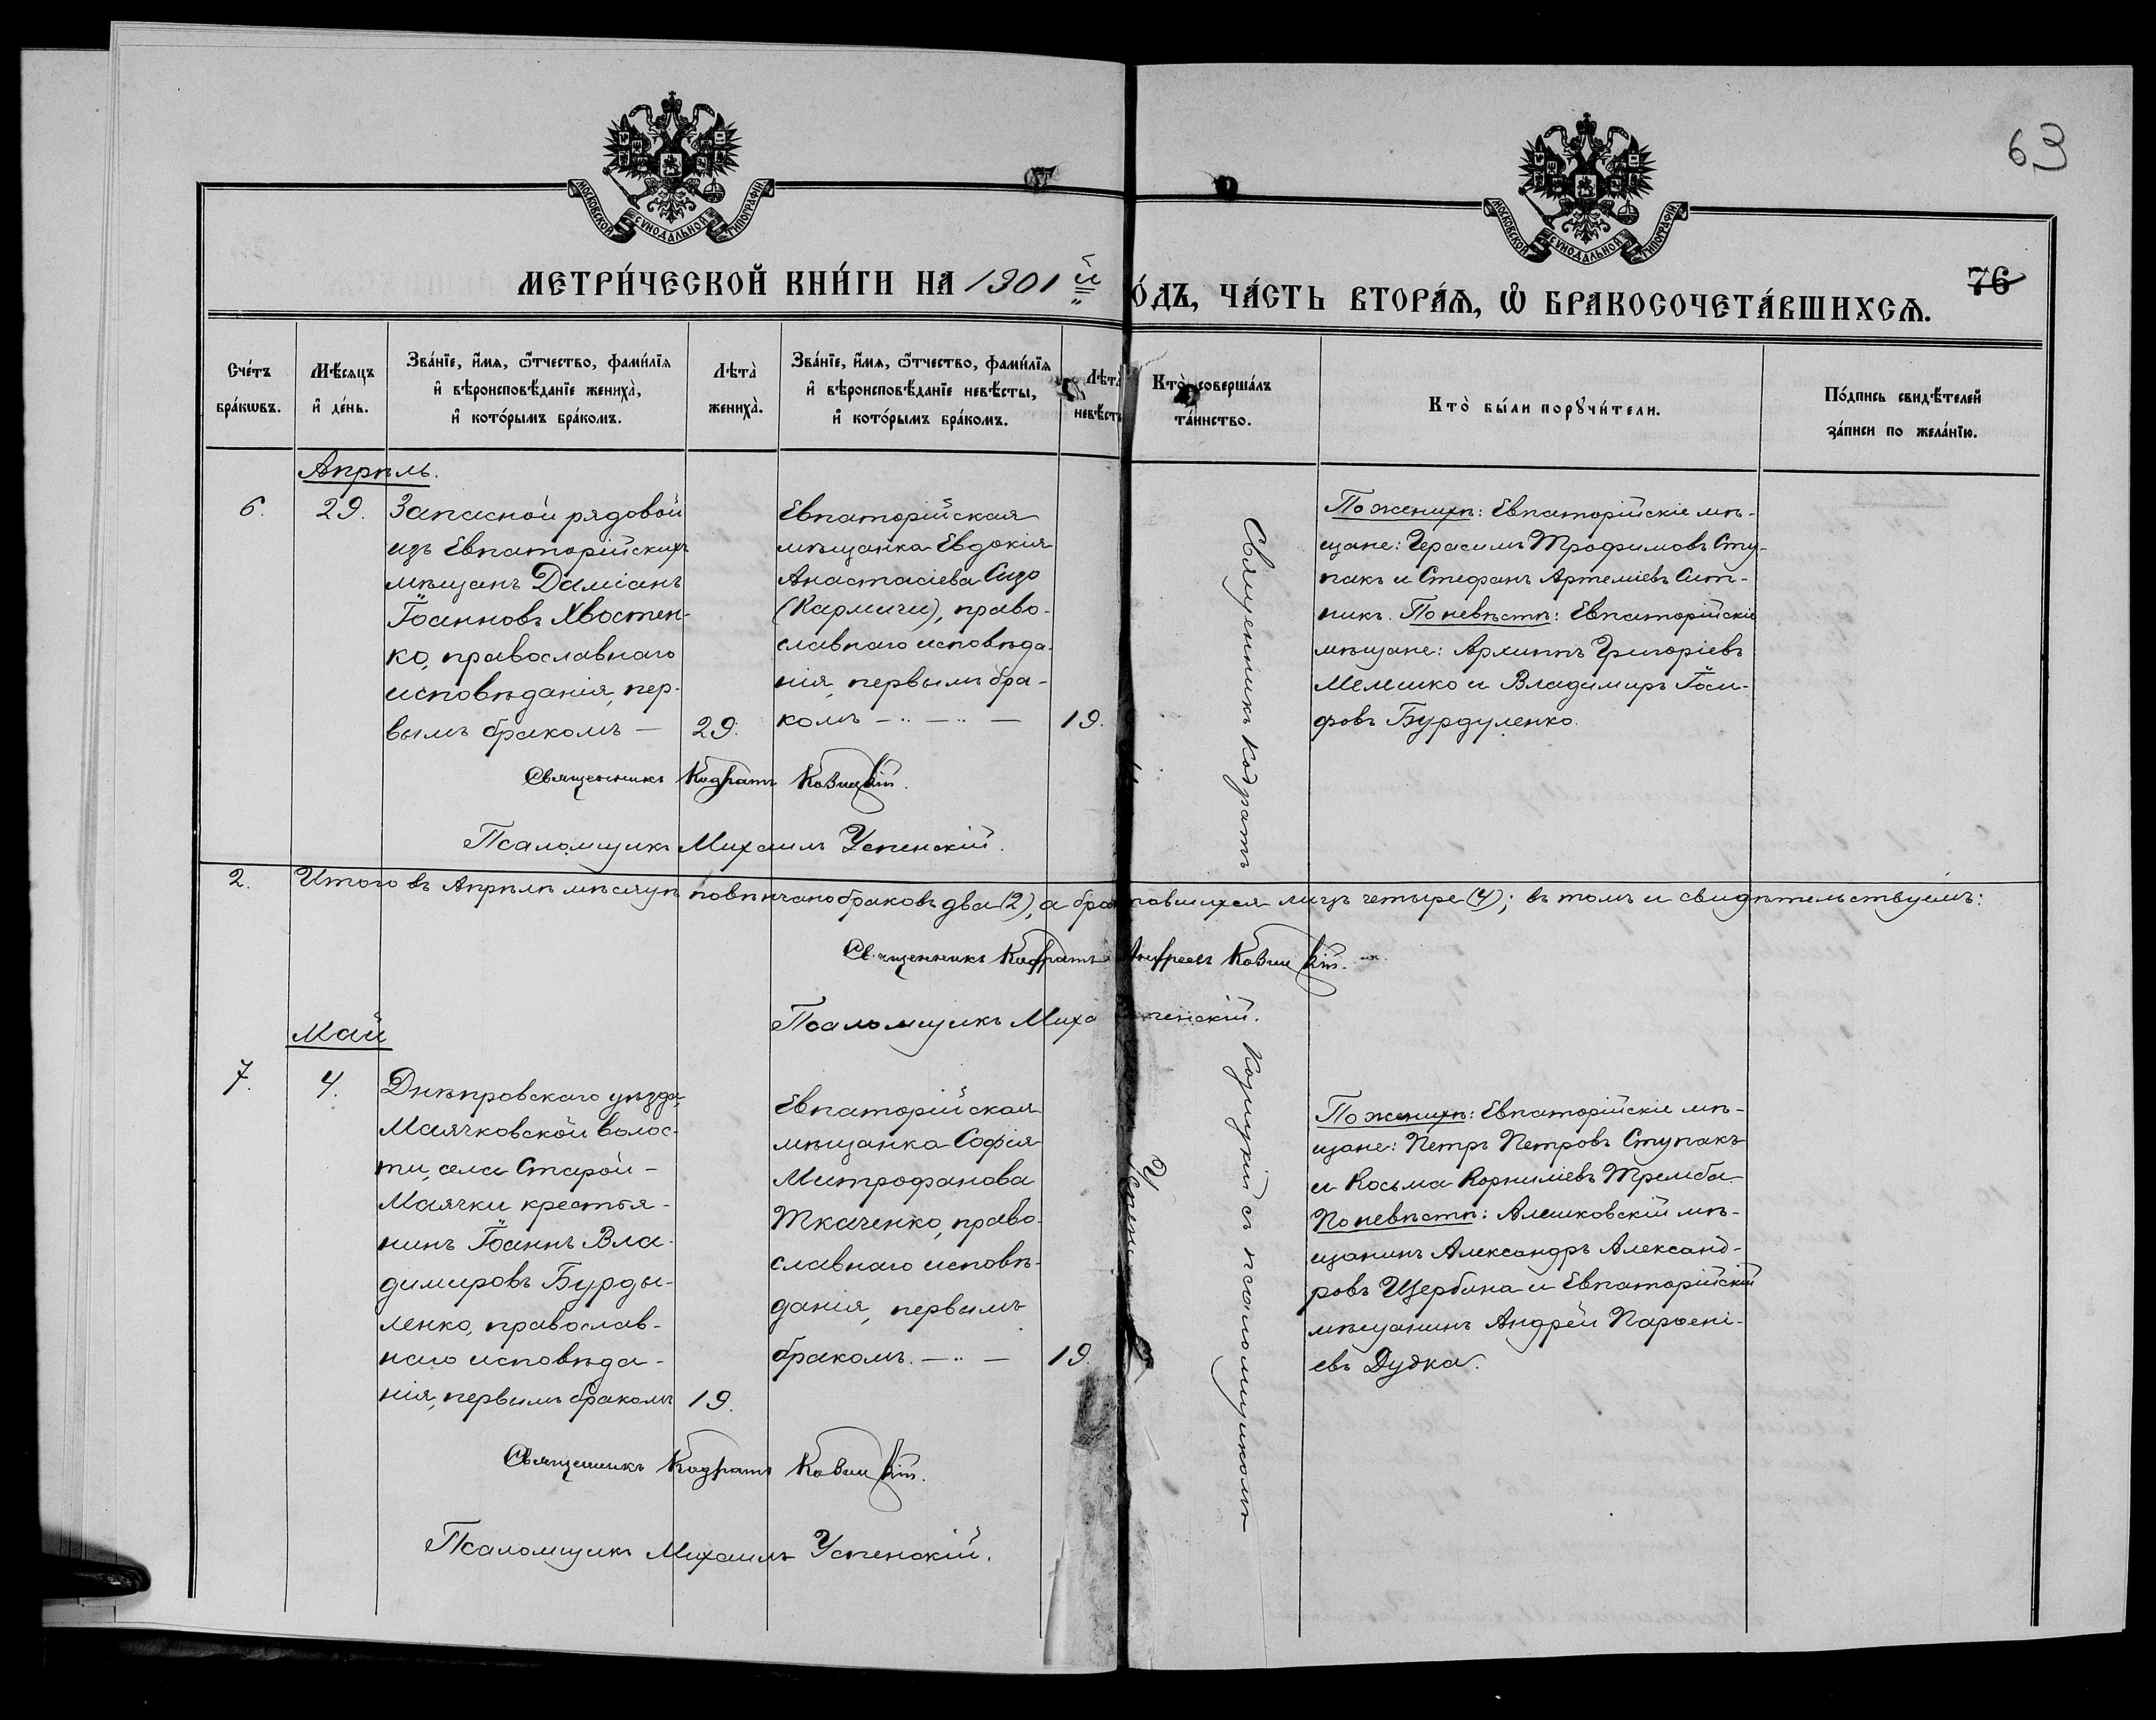 63
МОСКОВСКОЙ СѴНОДАЛЬНОЙ ТИПОГРАФІИ
МОСКОВСКОЙ СѴНОДАЛЬНОЙ ТИПОГРАФІИ
МЕТРИ́ЧЕСКОЙ КНИ́ГИ НА 1901 й
О́ДЪ, ЧА́СТЬ ВТОРА́Ѧ, Ѽ БРАКОСОЧЕТА́ВШИХСѦ.
76
Сче́тъ
бра́кѡвъ.
Мѣ́сяцъ
и҆ де́нь.
Зва́нїе, и҆́мя, ѻ҆́тчество, фами́лїя
и҆ вѣроисповѣ́данїе жениха̀,
и҆ кото́рымъ бра́комъ.
Лѣта̀
жениха̀.
Зва́нїе, и҆́мя, ѻ҆́тчество, фами́лїя
и҆ вѣроисповѣ́данїе невѣ́сты,
и҆ кото́рымъ бра́комъ.
Лѣта
невѣ́ст
Кто̀ соверша́лъ
та́инство.
Кто̀ бы́ли порꙋчи́тели.
По́дпись свидѣ́телей
за́писи по жела́нїю.
Апрѣль.
6.
29.
Запасной рядовой
изъ Евпаторійскихъ
мѣщанъ Даміанъ
Іоанновъ Хвостен-
ко, православнаго
исповѣданія, пер-
вымъ бракомъ —
29.
Евпаторійская
мѣщанка Евдокія
Анастасіева Сизо
(Кармичи), право-
славнаго исповѣда-
нія, первымъ бра-
комъ — ·· — ·· —
19.
Священникъ Кодратъ
По женихѣ: Евпаторійскіе мѣ-
щане: Герасимъ Трофимовъ Сту-
пакъ и Стефанъ Артеміевъ Сит-
никъ. По невѣстѣ: Евпаторійскіе
мѣщане: Архиппъ Григоріевъ
Мемшко и Владимиръ Іоси-
фовъ Бурдуленко.
Священникъ Кодратъ
Псаломщикъ Михаилъ Успенскій.
2.
Итого въ Апрѣлѣ мѣсяцѣ повѣнчано браковъ два (2), а бра ковавшихся лицъ четыре (4); въ томъ и свидѣтельствуемъ:
Священникъ Кодратъ Андреевъ
Псаломщикъ Миха пенскій.
Май
7.
4.
Днѣпровскаго уѣзда,
Маячковской волос-
ти, села Старой-
Маячки крестья-
нинъ Іоаннъ Вла-
димировъ Бурды-
ленко, православ-
наго исповѣда-
нія, первымъ бракомъ
19.
Евпаторійская
мѣщанка Софія
Митрофанова
Ткаченко, право-
славнаго исповѣ-
данія, первымъ
бракомъ. — ·· —
19.
съ псаломщикомъ
По женихѣ: Евпаторійскіе мѣ-
щане: Петръ Петровъ Ступакъ
и Косьма Корниліевъ Тремба.
По невѣстѣ: Алешковскій мѣ-
щанинъ Александръ Александ-
ровъ Щербина и Евпаторійскій
мѣщанинъ Андрей Парѳені-
евъ Дудка.
Священникъ Кодратъ
Псаломщикъ Михаилъ Успенскій.